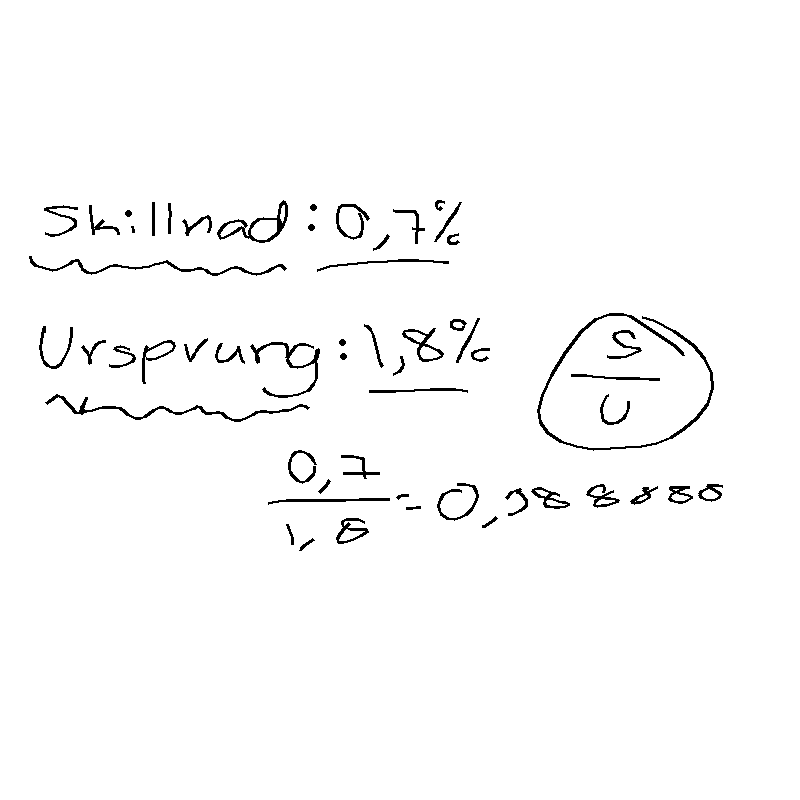 Skillnad: 0,7%
Ursprung: 1,8%
S
U
0,7
1,8
= 0,388888